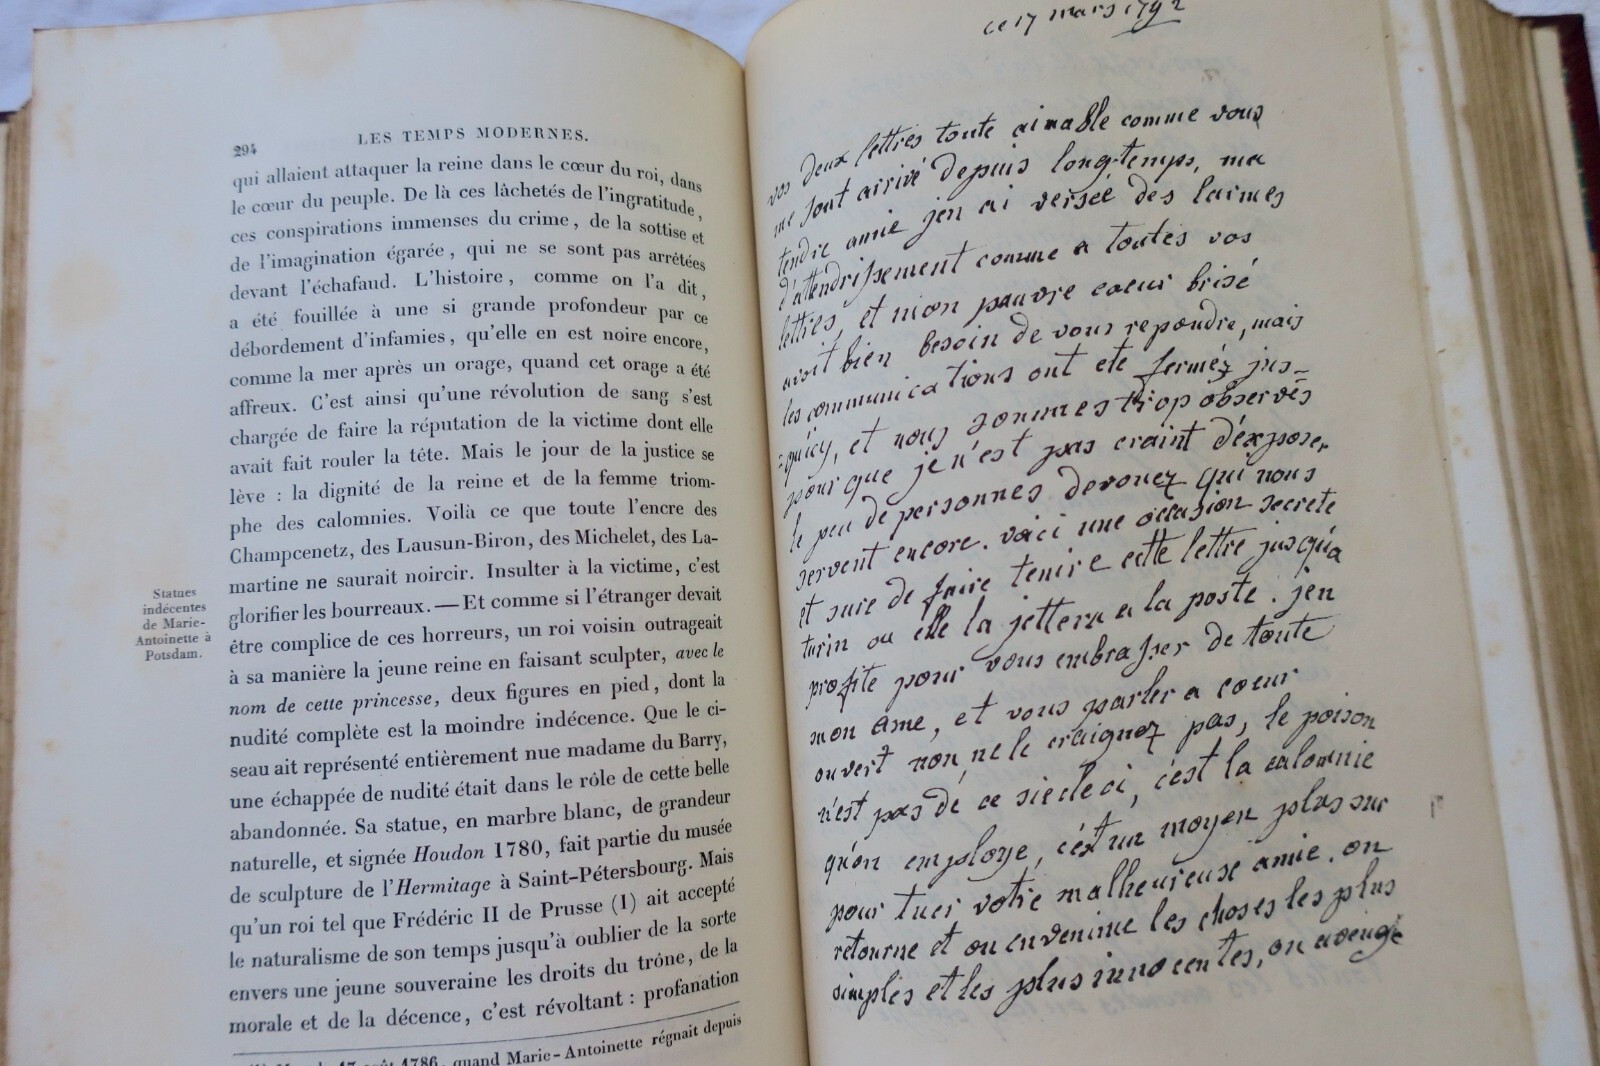 294
LES TEMPS MODERNES.
qui allaient attaquer la reine dans le cœur du roi, dans
le cœur du peuple. De là ces lâchetés de l'ingratitude,
ces conspirations immenses du crime, de la sottise et
de l'imagination égarée, qui ne se sont pas arrêtées
devant l'échafaud. L'histoire, comme on l'a dit,
a été fouillée à une si grande profondeur par ce
débordement d'infamies, qu'elle en est noire encore,
comme la mer après un orage, quand cet orage a été
affreux. C'est ainsi qu'une révolution de sang s'est
chargée de faire la réputation de la victime dont elle
avait fait rouler la tête. Mais le jour de la justice se
lève : la dignité de la reine et de la femme triom-
phe des calomnies. Voilà ce que toute l'encre des
Champcenetz, des Lausun-Biron, des Michelet, des La-
martine ne saurait noircir. Insulter à la victime, c'est
glorifier les bourreaux. — Et comme si l'étranger devait
être complice de ces horreurs, un roi voisin outrageait
à sa manière la jeune reine en faisant sculpter, avec le
nom de cette princesse, deux figures en pied, dont la
nudité complète est la moindre indécence. Que le ci-
seau ait représenté entièrement nue madame du Barry,
une échappée de nudité était dans le rôle de cette belle
abandonnée. Sa statue, en marbre blanc, de grandeur
naturelle, et signée Houdon 1780, fait partie du musée
de sculpture de l'Hermitage à Saint-Pétersbourg. Mais
qu'un roi tel que Frédéric II de Prusse (1) ait accepté
le naturalisme de son temps jusqu'à oublier de la sorte
envers une jeune souveraine les droits du trône, de la
morale et de la décence, c'est révoltant : profanation
17 août 1786, quand Marie-Antoinette régnait depuis
Statues
indécentes
de Marie-
Antoinette à
Potsdam.
ce 17 mars 1792
vos deux lettres toute aimable comme vous
me sont arrivé depuis long-temps, ma
tendre amie jen ai versée des larmes
d'attendrissement comme a toutes vos
lettres, et mon pauvre coeur brisé
avoit bien besoin de vous repondre, mais
les communications ont ete fermez jus-
=qu'icy, et nous sommes trop observés
pour que je n'est pas craint d'éxposer
le peu de personnes devouez qui nous
servent encore. voici une occasion secrete
et sure de faire tenire cette lettre jusqu'a
turin ou elle la jettera a la poste. j'en
profite pour vous embrasser de toute
mon ame, et vous parler a coeur
ouvert non, ne le craignez pas, le poison
n'est pas de ce siecle ci, c'est la calomnie
qu'on employe, c'est un moyen plus sur
pour tuer votre malheureuse amie. on
retourne et on envenime les choses les plus
simples et les plus innocentes, on aveugle